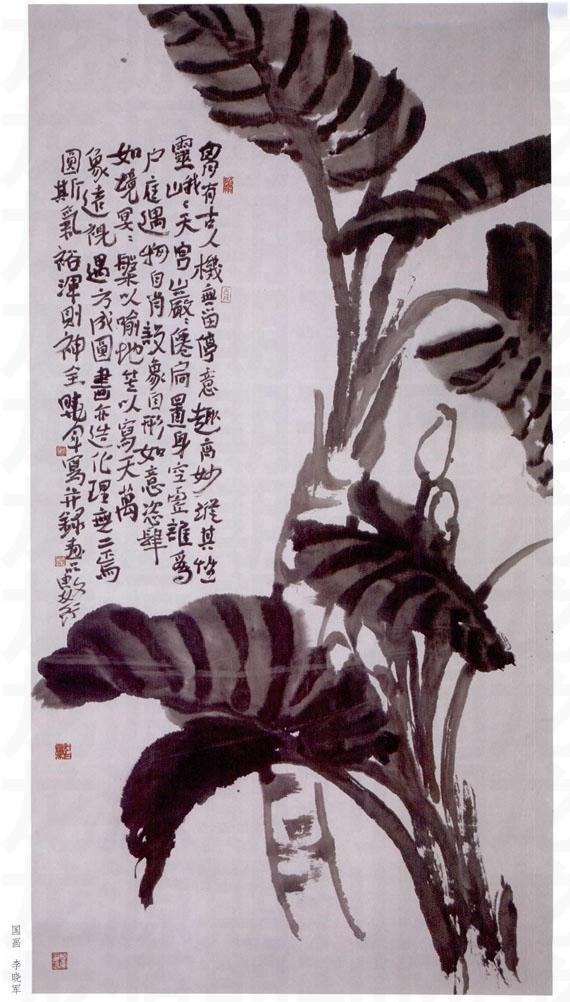 胷有古人機無留停意趣高妙縱其性
靈峨〻天宮嚴〻僊扃置身空靈誰爲
户庭遇物自肖設象自形如意恣肆
如境冥〻槃以喻地笠以寫天萬
象遠視遇方成圓畫亦造化理無二焉
圓斯氣裕渾則神全曉軍寫并錄畫品數行
国画 李晓军